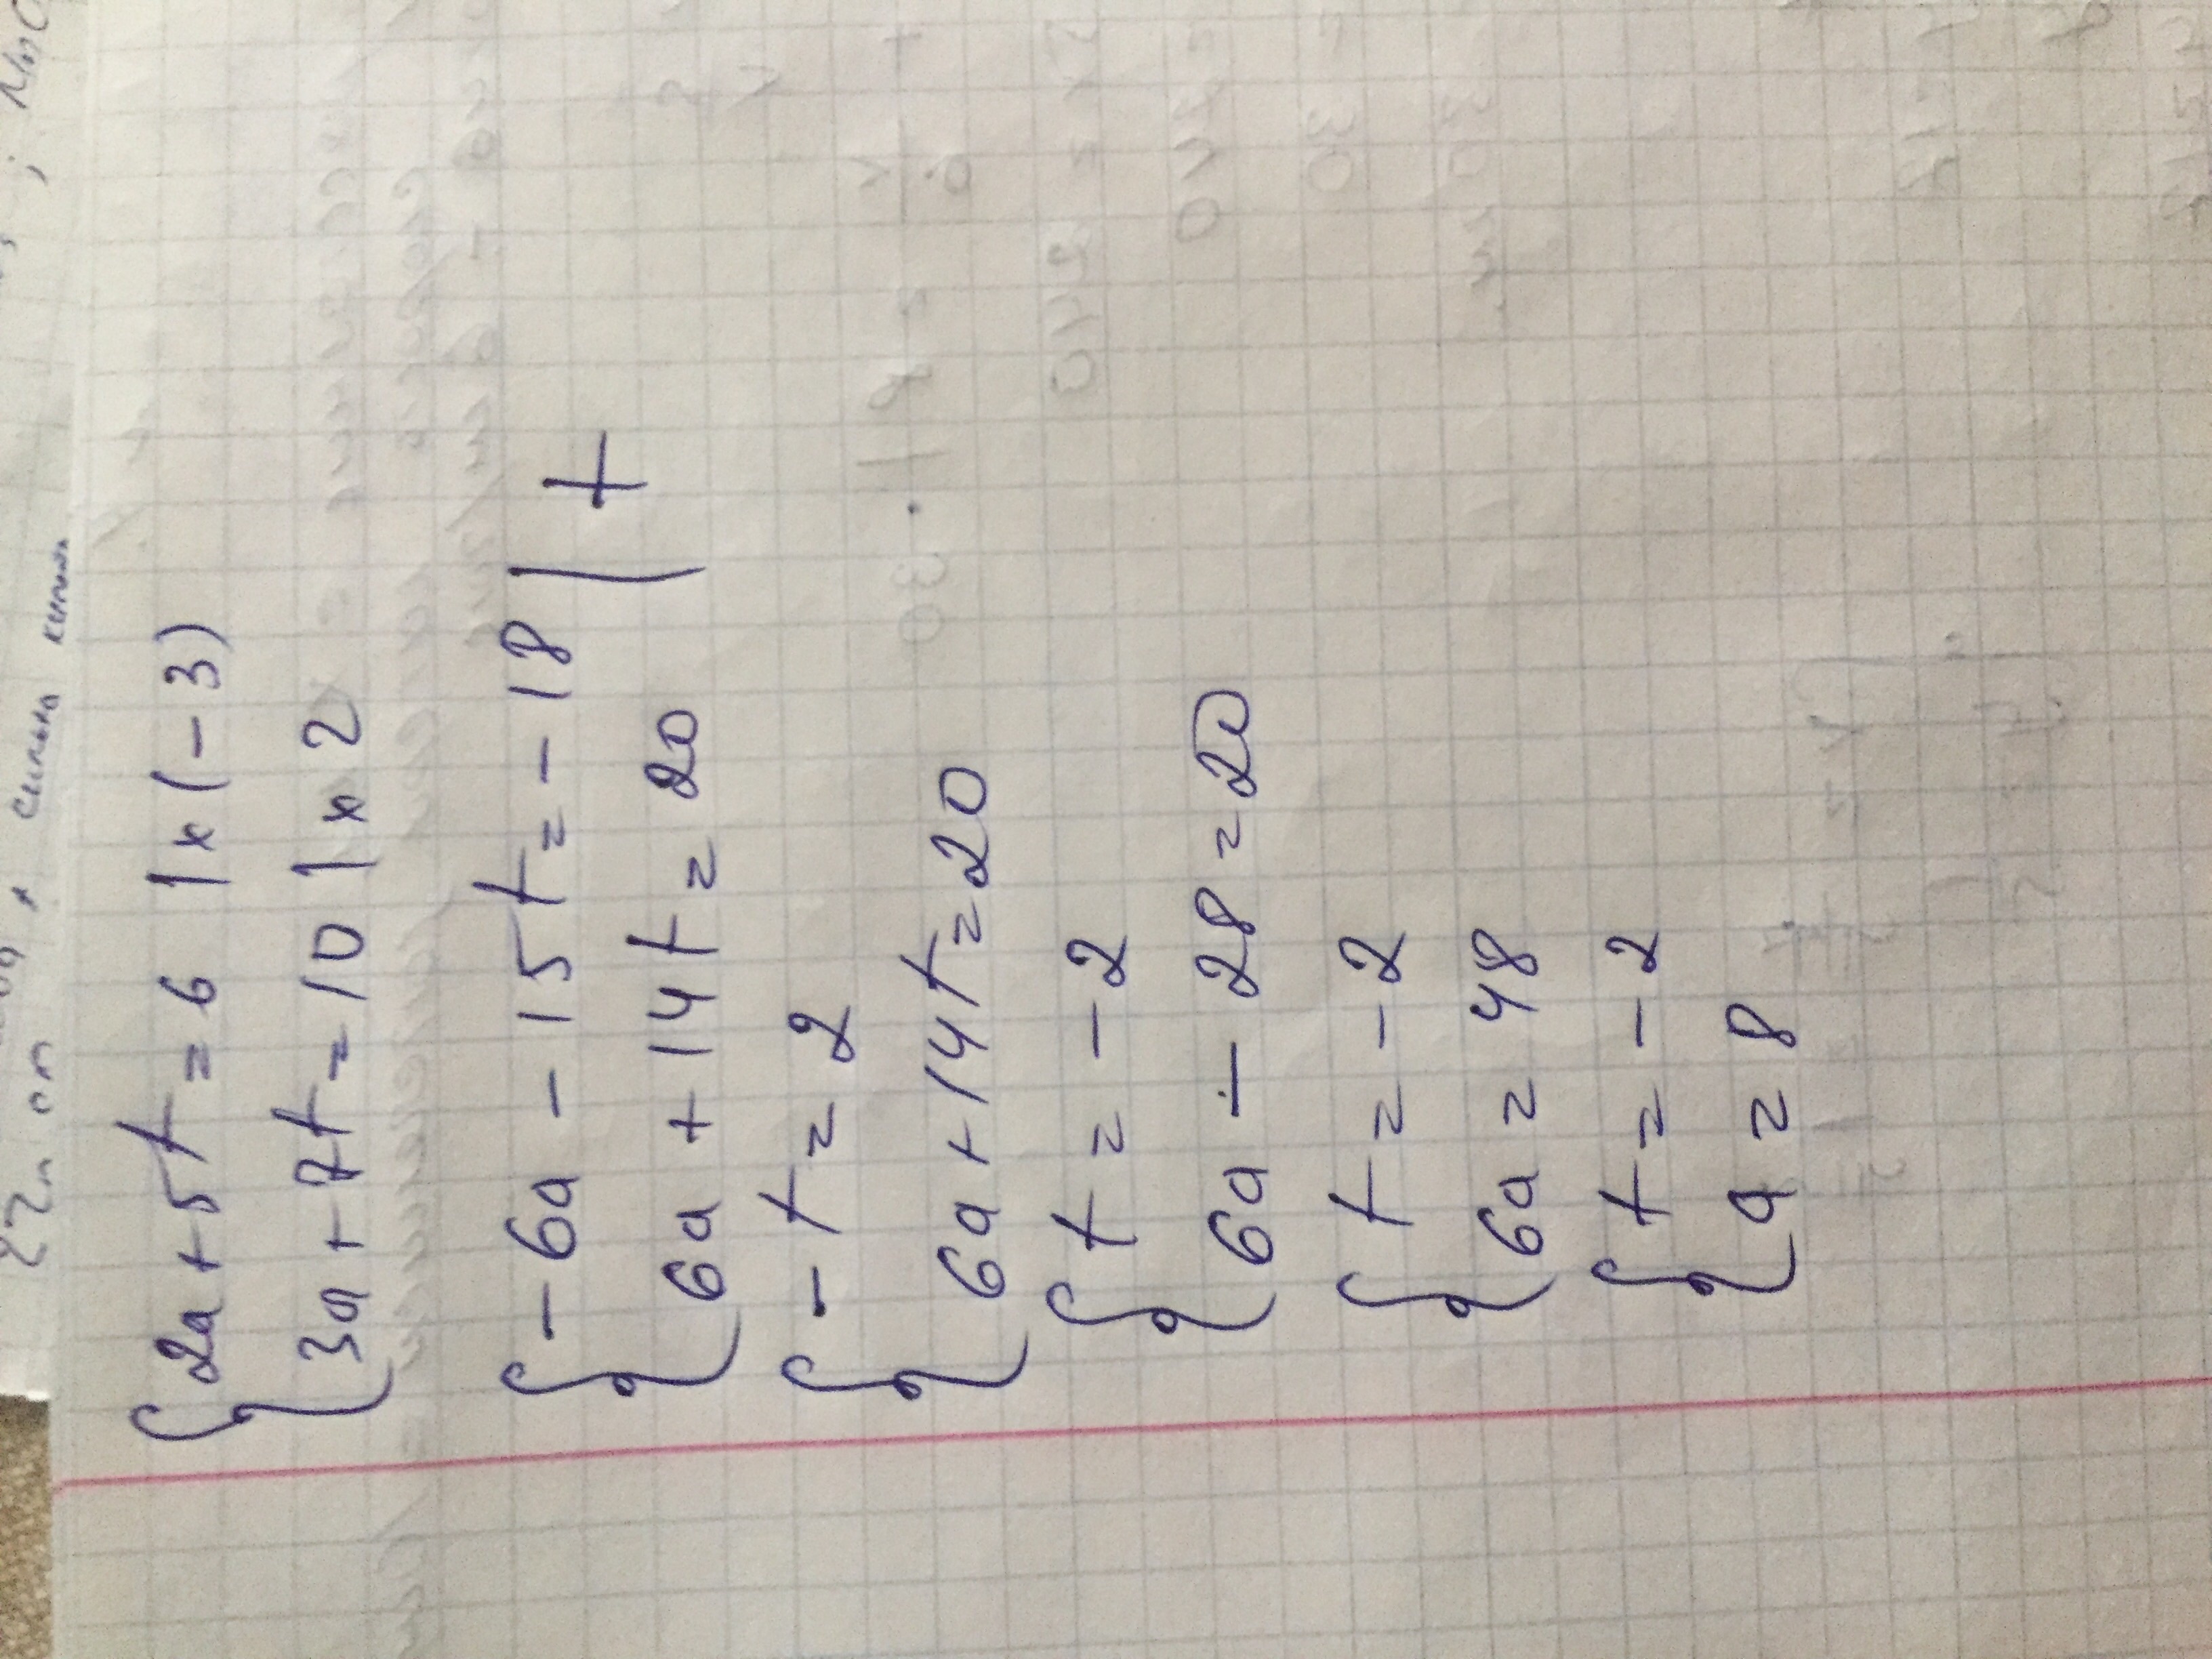 сильно кипят
2a + 5t = 6 | x (-3)
3a + 7t = 10 | x 2
- 6a - 15t = - 18 | +
6a + 14t = 20
- t = 2
6a + 14t = 20
t = - 2
6a - 28 = 20
t = - 2
6a = 48
t = - 2
a = 8